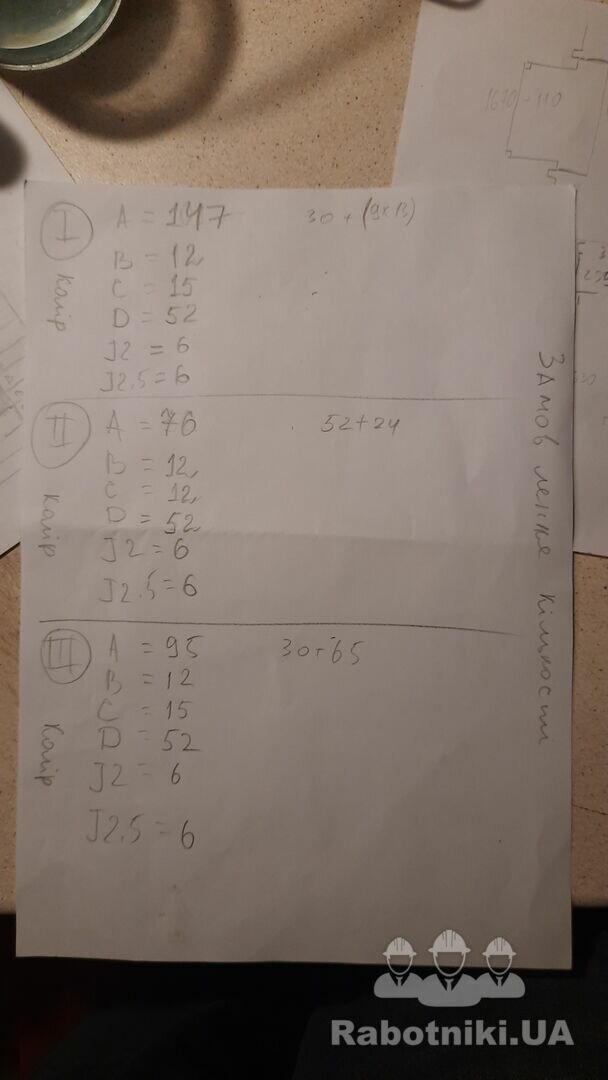 Замовлення кількості
I колір
A = 147 30 + (9×13)
B = 12
C = 15
D = 52
J2 = 6
J2.5 = 6
II колір
A = 76 52+24
B = 12
C = 12
D = 52
J2 = 6
J2.5 = 6
III колір
A = 95 30+65
B = 12
C = 15
D = 52
J2 = 6
J2.5 = 6
1670 - 110
Rabotniki.UA